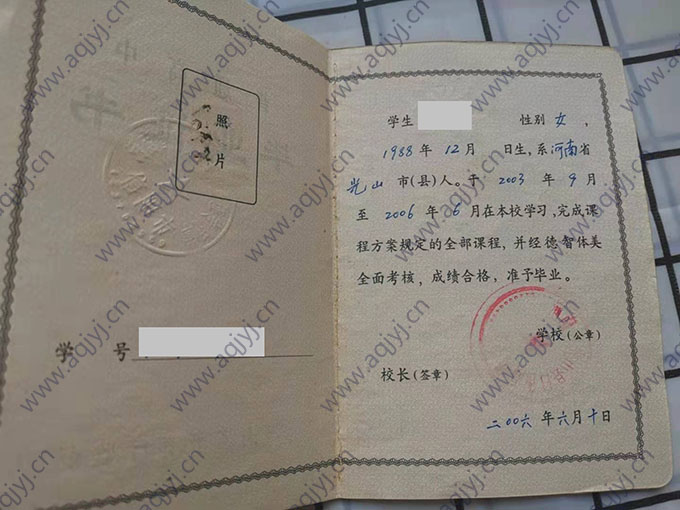 照
片
学 号
学生 性别 女 ,
1988 年 12 月 日生, 系 河南 省
光山 市(县)人。于 2003 年 9 月
至 2006 年 6 月在本校学习, 完成课
程方案规定的全部课程, 并经德智体美
全面考核, 成绩合格, 准予毕业。
学校(公章)
校长(签章)
二00六 年 六 月 十 日
www.aqjyj.cn